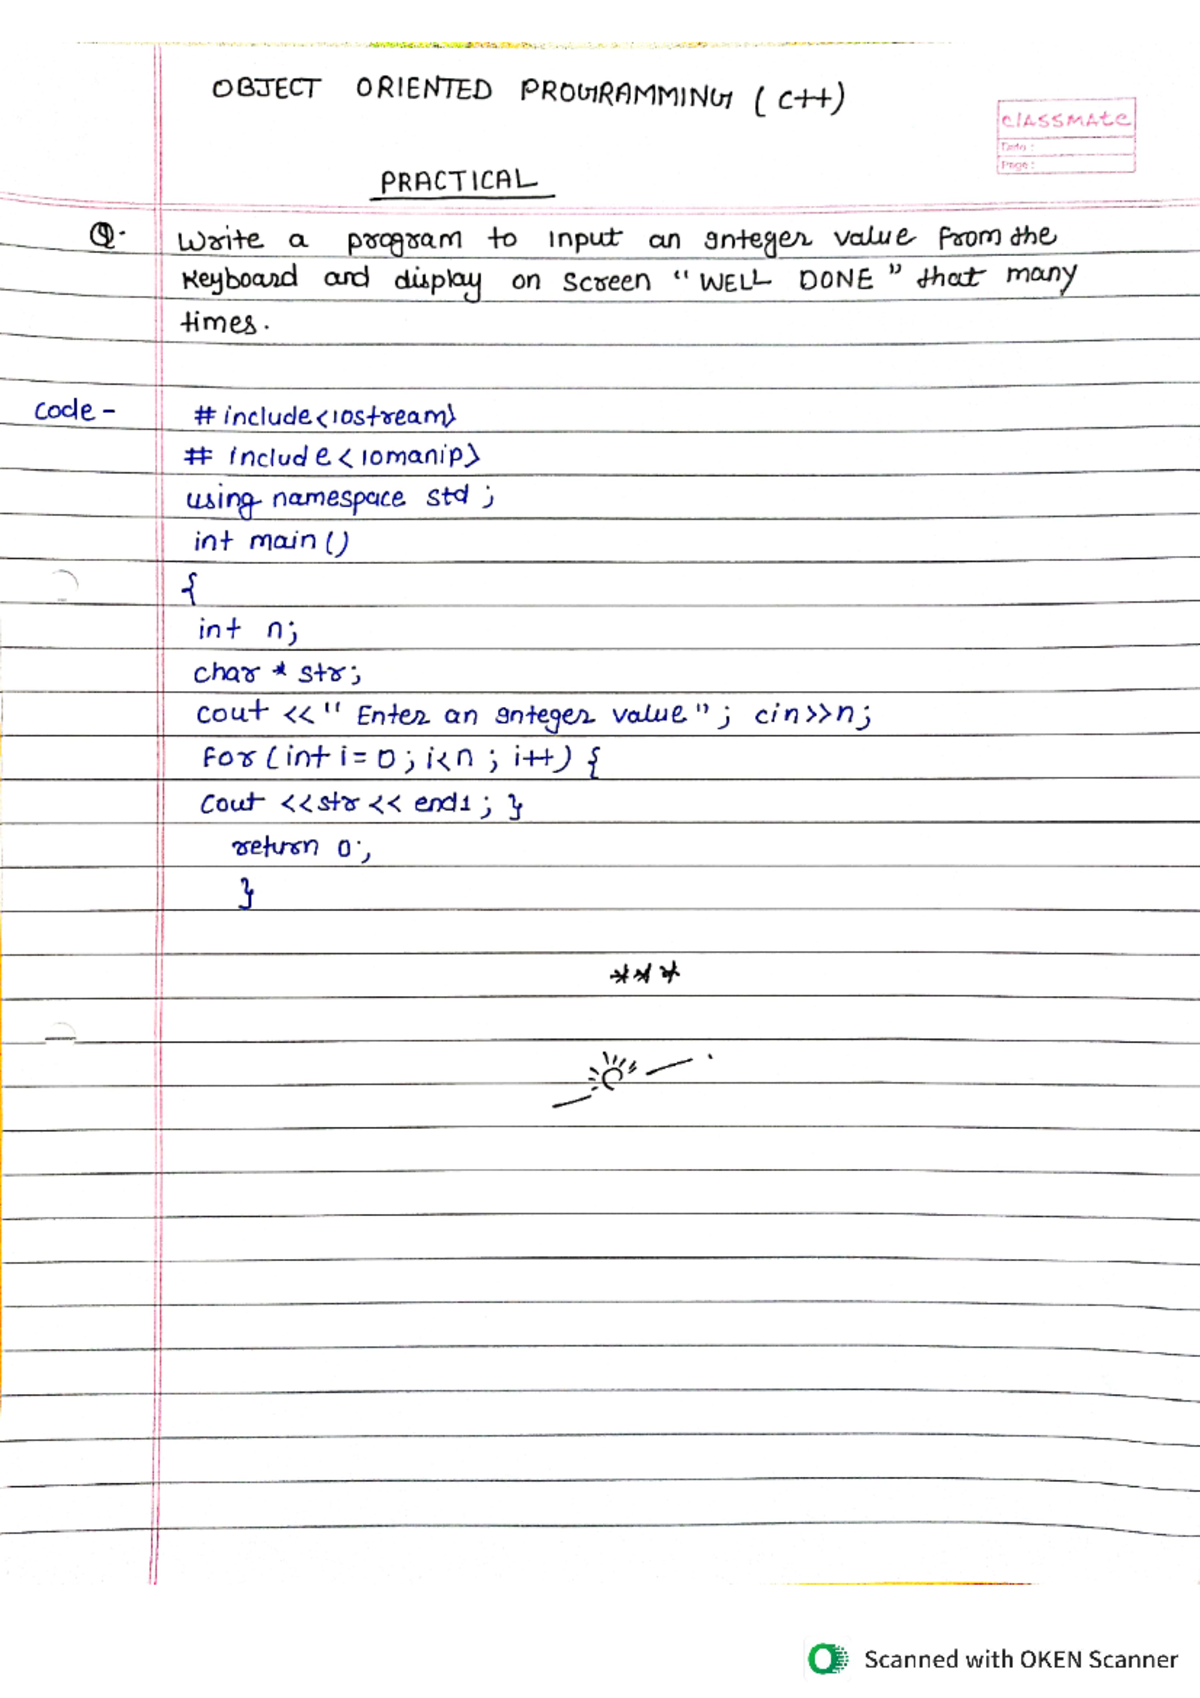 OBJECT ORIENTED PROGRAMMING (C++)
CLASSMATE
Date :
Page :
PRACTICAL
Q. Write a program to input an integer value from the
Keyboard and display on screen "WELL DONE" that many
times.
Code - # include<iostream>
# include<iomanip>
using namespace std ;
int main ()
{
int n;
char * str;
cout <<" Enter an integer value" ; cin>>n;
for (int i = 0 ; i<n ; i++) {
cout <<str<< endl ; }
return 0 ;
}
***
Scanned with OKEN Scanner